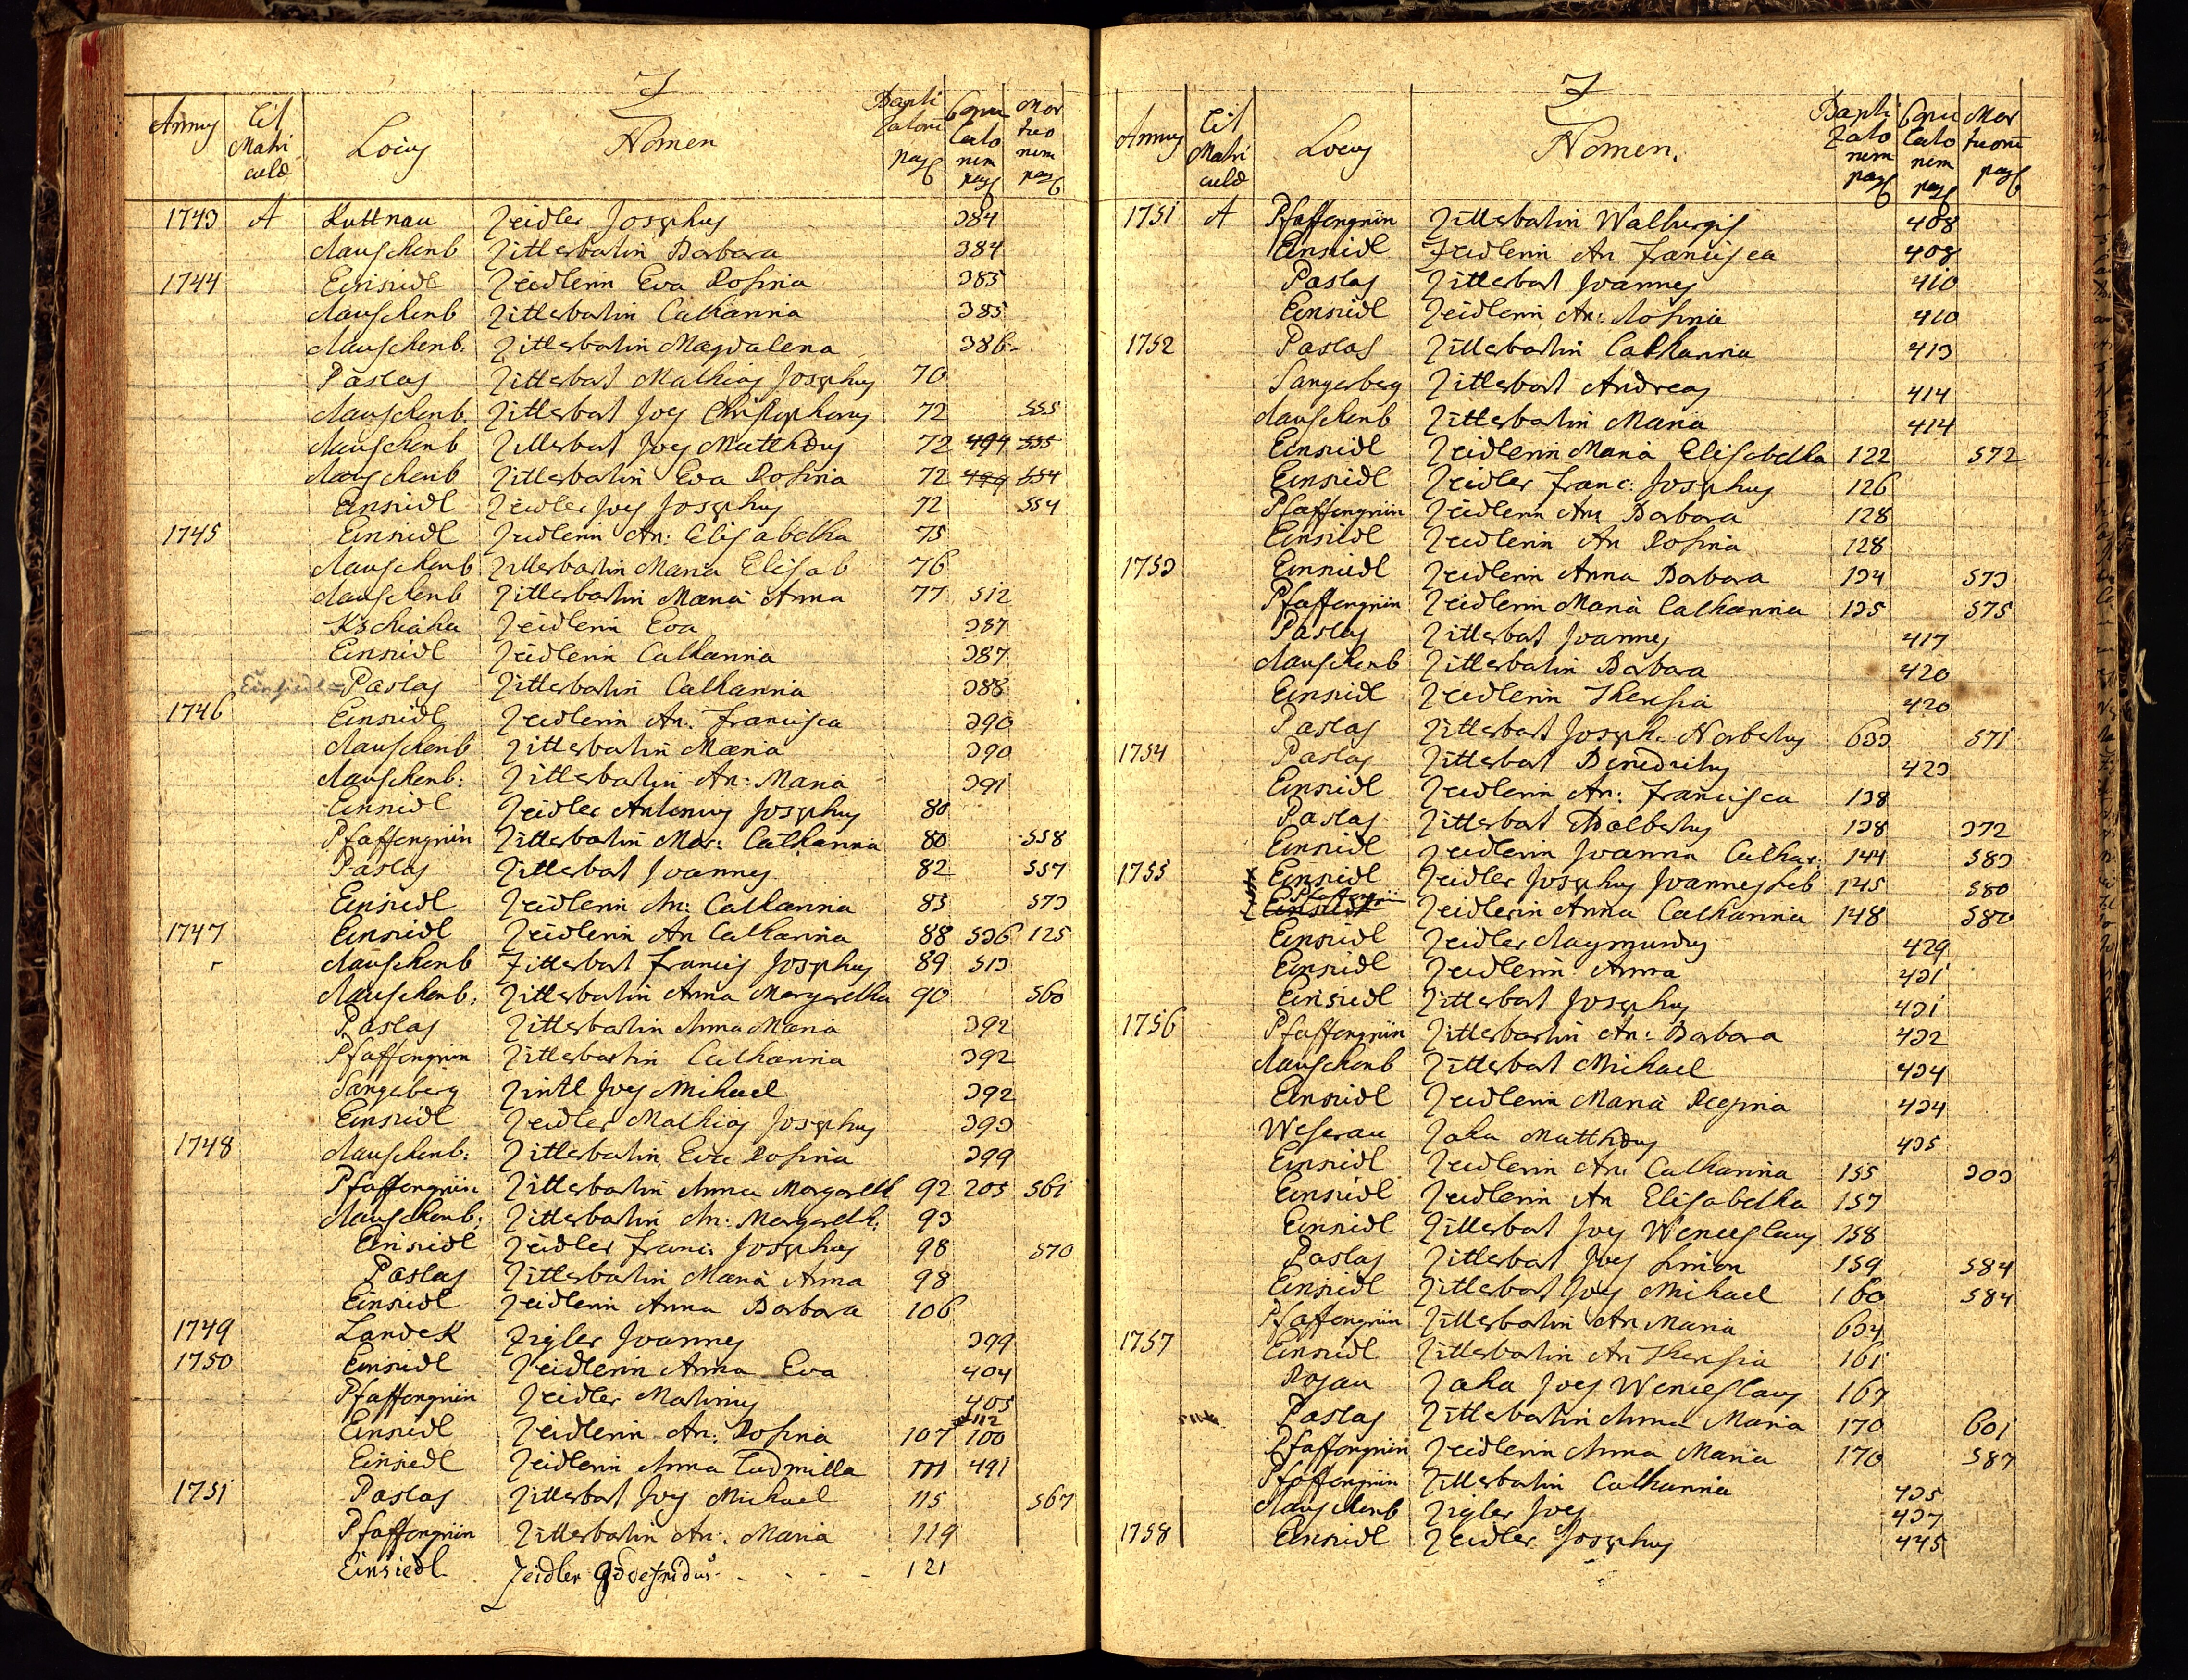 Z
Annus Lit Matri culæ Locus Nomen Bapti zatorū pag Copu lato rum pag Mor tuo rum pag
1743 A Kuttnau Zeidler Josephus 384
Rauschenb Zitterbartin Barbara 384
1744 Einsiedl Zeidlerin Eva Rosina 385
Rauschenb Zitterbartin Catharina 385
Rauschenb. Zitterbartin Magdalena 386
Paslas Zitterbart Mathias Josephus 70
Rauschenb. Zitterbart Joes Christophorus 72 555
Rauschenb Zitterbart Joes Matthæus 72 494 555
Rauschenb Zitterbartin Eva Rosina 72 499 554
Einsiedl Zeidler Joes Josephus 72 554
1745 Einsiedl Zeidlerin An: Elisabetha 75
Rauschenb Zitterbartin Maria Elisab 76
Rauschenb Zitterbartin Maria Anna 77 512
Kschiaha Zeidlerin Eva 387
Einsiedl Zeidlerin Catharina 387
Einsiedl = Paslas Zitterbartin Catharina 388
1746 Einsiedl Zeidlerin An. Francisca 390
Rauschenb Zitterbartin Maria 390
Rauschenb: Zitterbartin An: Maria 391
Einsiedl Zeidler Antonius Josephus 80
Pfaffengrün Zitterbartin Mar: Catharina 80 558
Paslas Zitterbart Joannes 82 557
Einsiedl Zeidlerin An: Catharina 83 573
1747 Einsiedl Zeidlerin An Catharina 88 536 125
Rauschenb Zitterbart Francis Josephus 89 513
Rauschenb: Zitterbartin Anna Margaretha 90 560
Paslas Zitterbartin Anna Maria 392
Pfaffengrün Zitterbartin Catharina 392
Sangeberg Zintl Joes Mihael 392
Einsiedl Zeidler Mathias Josephus 393
1748 Rauschenb: Zitterbartin Eva Rosina 399
Pfaffengrün Zitterbartin Anna Margareth 92 205 561
Rauschenb: Zitterbartin An: Margareth: 93
Einsiedl Zeidler Franc: Josephus 98 570
Paslas Zitterbartin Maria Anna 98
Einsiedl Zeidlerin Anna Barbara 106
1749 Landek Zigler Joannes 399
1750 Einsiedl Zeidlerin Anna Eva 404
Pfaffengrün Zeidler Martinus 405
Einsiedl Zeidlerin An: Rosina 107 112 100
Einsiedl Zeidlerin Anna Ludmilla 111 491
1751 Paslas Zitterbart Joes Michael 115 567
Pfaffengrün Zitterbartin An: Maria 119
Einsiedl Zeidler Godefridus 121
Z
Annus Lit Matri culæ Locus Nomen. Bapti zato rum pag Copu lato rum pag Mor tuorū pag
1751 A Pfaffengrün Zitterbartin Walburgis 408
Einsiedl Zeidlerin An Francisca 408
Paslas Zitterbart Joannes 410
Einsiedl Zeidlerin An: Rosina 410
1752 Paslas Zitterbartin Catharina 413
Sangerberg Zitterbart Andreas 414
Rauschenb Zitterbartin Maria 414
Einsiedl Zeidlerin Maria Elisabetha 122 572
Einsiedl Zeidler Franc: Josephus 126
Pfaffengrün Zeidlerin An: Barbara 128
Einsiedl Zeidlerin An Rosina 128
1753 Einsiedl Zeidlerin Anna Barbara 134 573
Pfaffengrün Zeidlerin Maria Catharina 135 575
Paslas Zitterbart Joannes 417
Rauschenb Zitterbartin Barbara 420
Einsiedl Zeidlerin Theresia 420
Paslas Zitterbart Joseph. Norbertus 633 571
1754 Paslas Zitterbart Benedictus 423
Einsiedl Zeidlerin An: Francisca 138
Paslas Zitterbart Adalbertus 138 372
Einsiedl Zeidlerin Joanna Cathar: 144 583
1755 Einsiedl Zeidler Josephus Joannes Neb 145 580
Einsiedl Pfaffengrün Zeidlerin Anna Catharina 148 580
Einsiedl Zeidler Raymundus 429
Einsiedl Zeidlerin Anna 431
Einsiedl Zitterbart Josephus 431
1756 Pfaffengrün Zitterbartin An: Barbara 432
Rauschenb Zitterbart Michael 434
Einsiedl Zeidlerin Maria Regina 434
Weserau Zaha Matthæus 435
Einsiedl Zeidlerin An: Catharina 155 303
Einsiedl Zeidlerin An Elisabetha 157
Einsiedl Zitterbart Joes Wenceslaus 158
Paslas Zitterbart Joes Simon 159 584
Einsiedl Zitterbart Joes Mihael 160 584
Pfaffengrün Zitterbartin An Maria 634
1757 Einsiedl Zitterbartin An Theresia 161
Rojau Zaha Joes Wenceslaus 167
Paslas Zitterbartin Anna Maria 170 601
Pfaffengrün Zeidlerin Anna Maria 170 587
Pfaffengrün Zitterbartin Catharina 435
Rauschenb Zigler Joes 437
1758 Einsiedl Zeidler Josephus 445